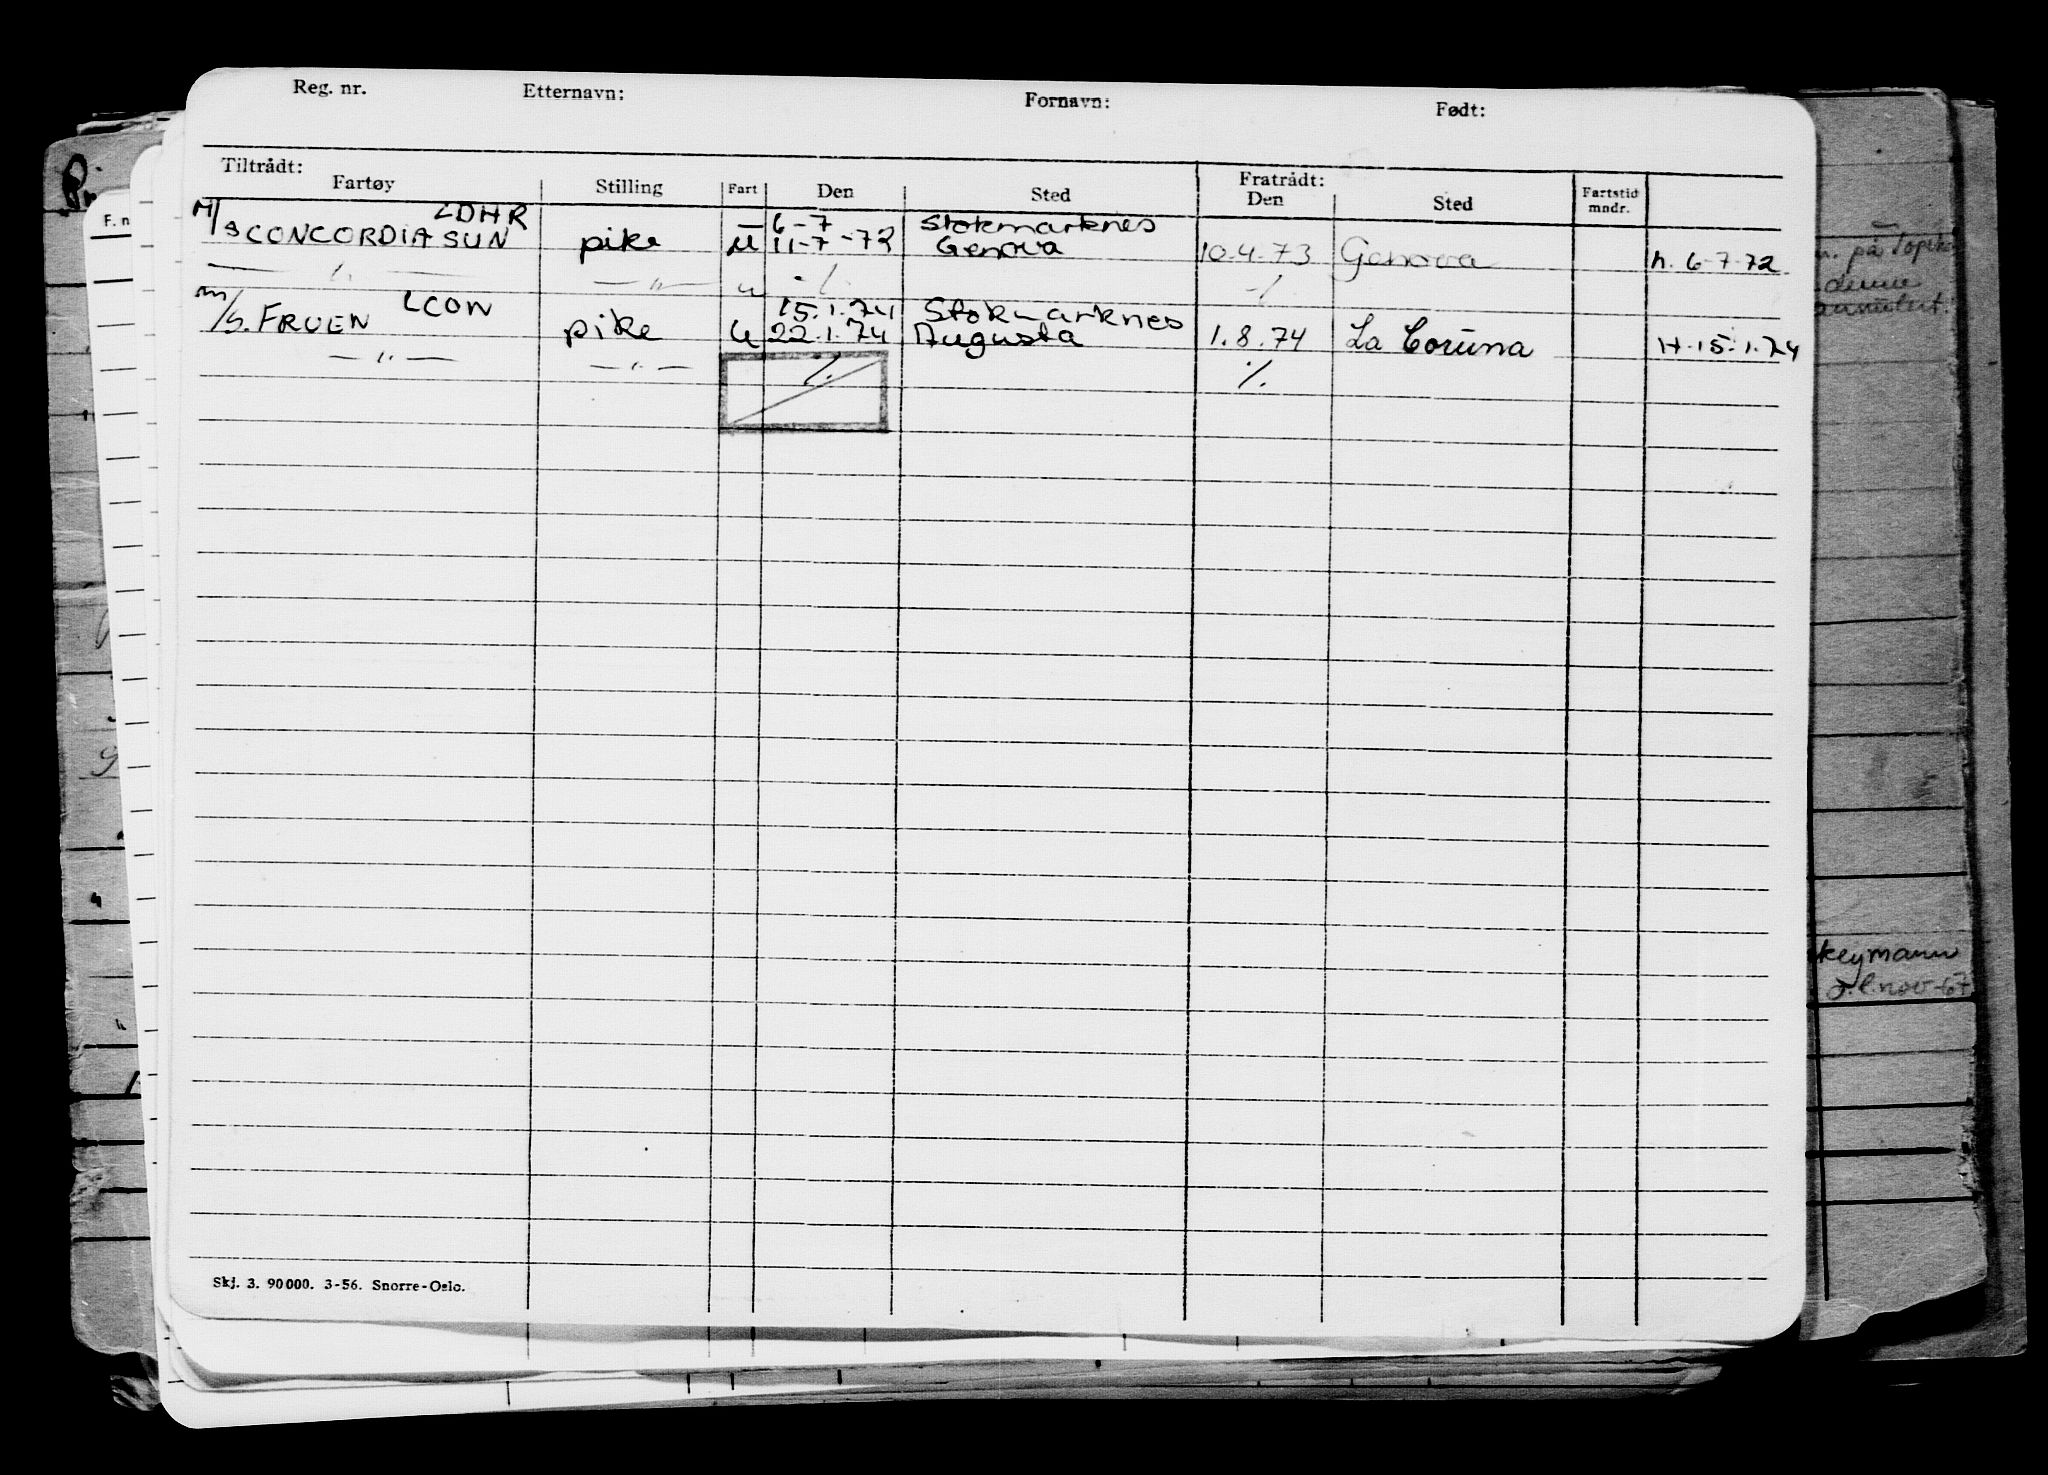 Reg. nr. Etternavn: Fornavn: Født:
Tiltrådt: Fratrådt:
Fartøy Stilling Fart Den Sted Den Sted Fartstid mndr.
LDHR 6-7 Stokmarknes
M/S CONCORDIA SUN pike u 11-7-72 Genova 10.4.73 Genova h. 6-7-72
— " — — " — u ·/. ·/.
LCON 15.1.74 Stokmarknes
m/s. FRUEN pike u 22.1.74 Augusta 1.8.74 La Coruna H. 15.1.74
— " — — " — ·/. ·/.
Skj. 3. 90 000. 3-56. Snorre-Oslo.
F. n
n. på
denne
annulert.
keymann
nov-67